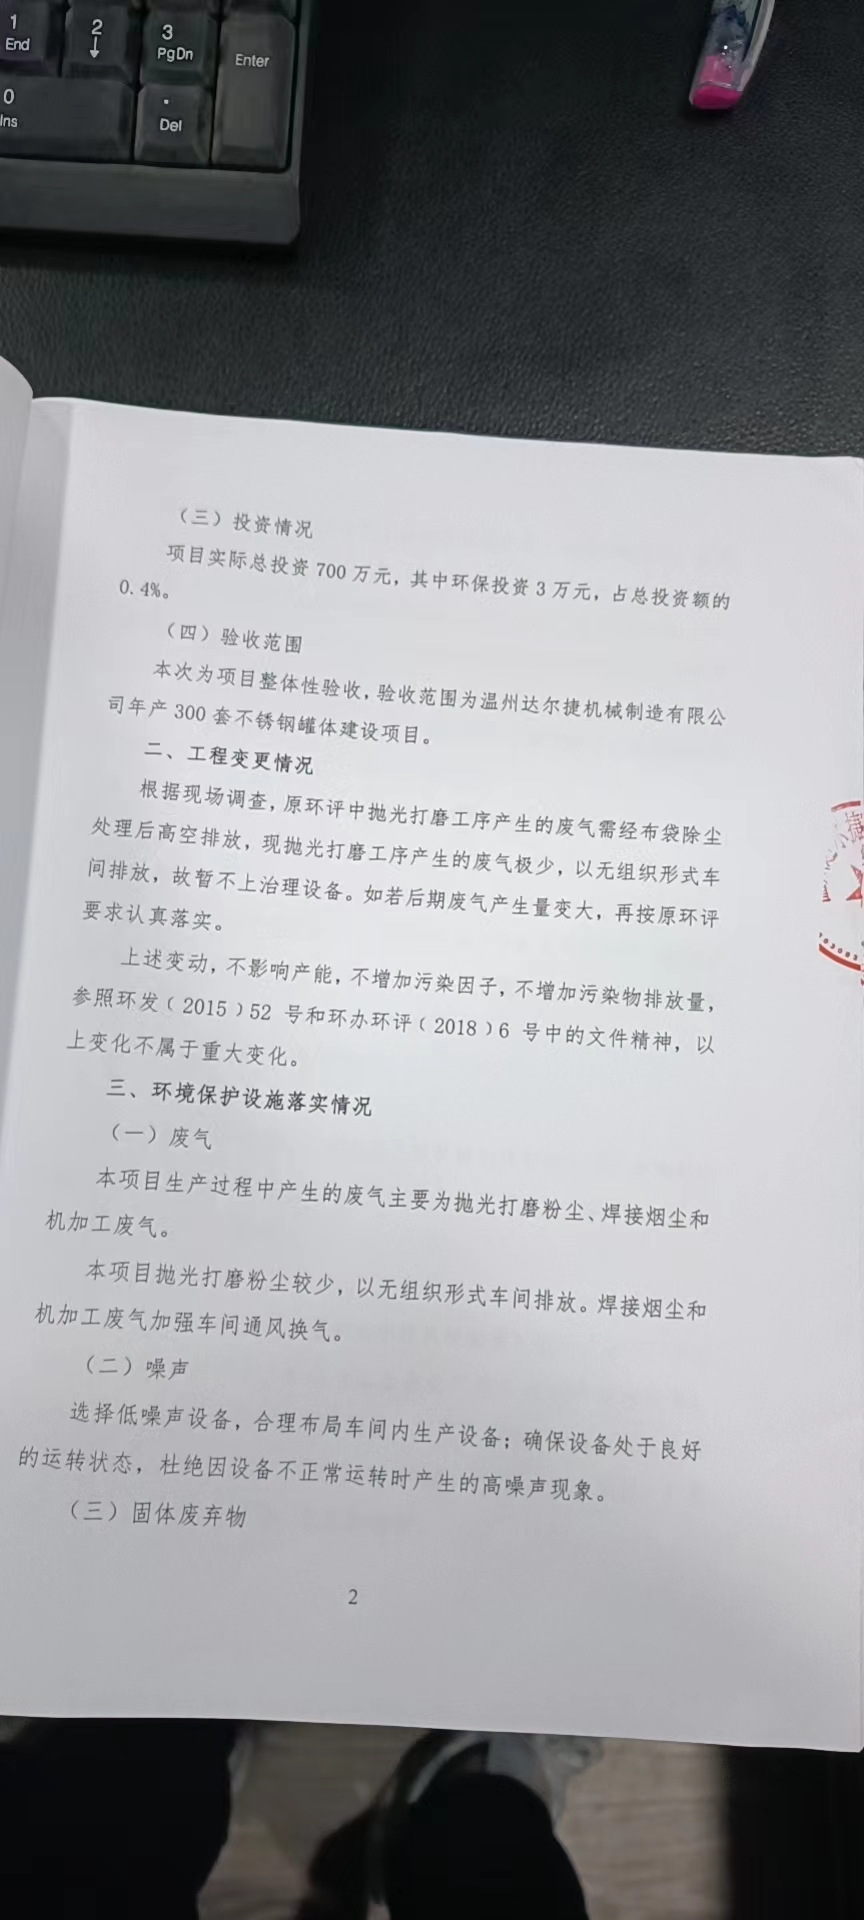 1
End
2
↓
3
PgDn
Enter
0
Ins
.
Del
（三）投资情况
项目实际总投资 700 万元，其中环保投资 3 万元，占总投资额的
0.4%。
（四）验收范围
本次为项目整体性验收，验收范围为温州达尔捷机械制造有限公
司年产 300 套不锈钢罐体建设项目。
二、工程变更情况
根据现场调查，原环评中抛光打磨工序产生的废气需经布袋除尘
处理后高空排放，现抛光打磨工序产生的废气极少，以无组织形式车
间排放，故暂不上治理设备。如若后期废气产生量变大，再按原环评
要求认真落实。
上述变动，不影响产能，不增加污染因子，不增加污染物排放量，
参照环发﹝2015﹞52 号和环办环评﹝2018﹞6 号中的文件精神，以
上变化不属于重大变化。
三、环境保护设施落实情况
（一）废气
本项目生产过程中产生的废气主要为抛光打磨粉尘、焊接烟尘和
机加工废气。
本项目抛光打磨粉尘较少，以无组织形式车间排放。焊接烟尘和
机加工废气加强车间通风换气。
（二）噪声
选择低噪声设备，合理布局车间内生产设备；确保设备处于良好
的运转状态，杜绝因设备不正常运转时产生的高噪声现象。
（三）固体废弃物
2